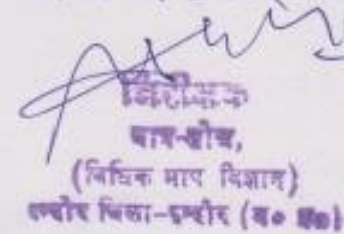 निरीक्षक
नाप-तोल,
(विधिक माप विज्ञान)
इन्दौर जिला-इन्दौर (म० प्र०)